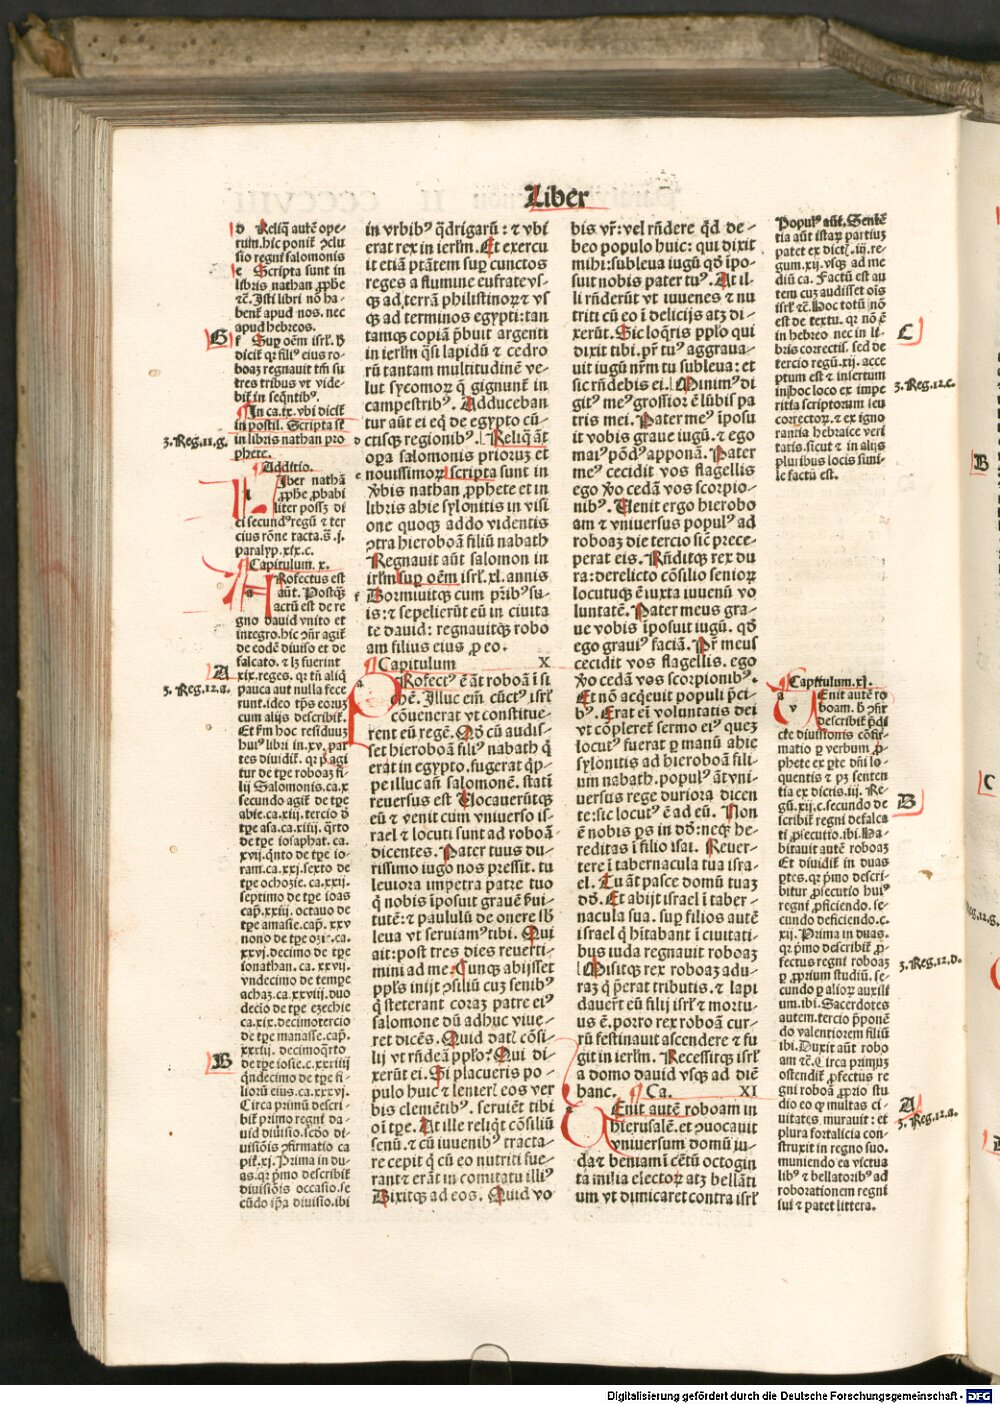 Liber
d Reliq̃ autẽ ope-
rum. hic poniť ↄclu
sio regni salomonis
e Scripta sunt in
libris nathan ꝓphe
⁊c̃. Isti libri nõ ha-
benť apud nos. nec
apud hebreos.
f Suꝑ oẽm isrľ.
diciť qꝛ filiꝰ eius ro-
boaꝫ regnauit tm̃ su
tres tribus vt vide-
biť in seq̃ntibꝰ.
¶In ca. ix. vbi diciť
in postil. Scripta sť
in libris nathan pro
phete.
¶Additio.
Liber nathã
ꝓphe ꝓbabi
liter possꝫ di
ci secundꝰ regũ ⁊ ter
cius rõne tacta. s̃. j.
paralyp. xix. c.
¶Capitulum. x.
a PRofectus est
aũt. Postq̃ꝫ
actũ est de re
gno dauid vnito et
integro. hic ↄñr agiť
de eodẽ diuiso et de
falcato. ⁊ lꝫ fuerint
xix. reges. qꝛ tñ aliq̃
pauca aut nulla fece
runt. ideo tp̃s eoruꝫ
cum alijs describiť.
Et ẜm hoc residuuꝫ
huiꝰ libri in. xv. par
tes diuidiť. qꝛ p̃ agi
tur de tp̃e roboaꝫ fi-
lij Salomonis. ca. x
secundo agiť de tp̃e
abie. ca. xiij. tercio đ
tp̃e asa. ca. xiiij. q̃rto
de tp̃e iosaphat. ca.
xvij. q̃nto de tp̃e io-
ram. ca. xxj. sexto de
tp̃e ochozie. ca. xxij.
septimo de tp̃e ioas
cap̃. xxiij. octauo de
tp̃e amasie. cap̃. xxv
nono de tp̃e ozie. ca.
xxvj. decimo de tp̃e
ionathan. ca. xxvij.
vndecimo de tempe
achaꝫ. ca. xxviij. duo
decio de tp̃e ezechie
ca. xix. decimotercio
de tp̃e manasse. cap̃.
xxxiij. decimoq̃rto
de tp̃e iosie. c. xxxiiij
q̃ndecimo de tp̃e fi-
lioꝝ eius. ca. xxxvj.
Circa primũ descri-
biť primo regni da-
uid diuisio. scđo di-
uisiõis ↄfirmatio ca
pit̃. xj. Prima in du-
as. qꝛ p̃mo describiť
diuisiõis occasio. se
cũdo ip̃a diuisio. ibi
G
3. Reg. 11. g.
A
3. Reg. 12. a.
B
in vrbibꝰ q̃drigarũ: ⁊ vbi
erat rex in ierľm. Et exercu
it etiã ptãtem suꝑ cunctos
reges a flumine eufrate vs-
qꝫ ad terrã philistinoꝝ ⁊ vs
qꝫ ad terminos egypti: tan
tamqꝫ copiã p̃buit argenti
in ierľm q̃si lapidũ ⁊ cedro
rũ tantam multitudinẽ ve-
lut sycomoꝝ q̃ gignunť in
campestribꝰ. Adduceban
tur aũt ei eq̃ de egypto cũ-
ctisqꝫ regionibꝰ. Reliq̃ ãt
opa salomonis prioruꝫ et
nouissimoꝝ scripta sunt in
ꝟbis nathan ꝓphete et in
libris ahie sylonitis in visi
one quoqꝫ addo videntis
ↄtra hieroboã filiũ nabath
Regnauit aũt salomon in
irľm suꝑ oẽm isrľ. xl. annis
Dormiuitqꝫ cum p̃ribꝰ su-
is: ⁊ sepelierũt eũ in ciuita
te dauid: regnauitqꝫ robo
am filius eius ꝓ eo.
¶Capitulum X
PRofectꝰ ẽ ãt roboã ĩ si
chẽ. Illuc em̃ cũctꝰ isrľ
cõuenerat vt constitue-
rent eũ regẽ. Qđ cũ audis-
set hieroboã filiꝰ nabath q̃
erat in egypto. fugerat q̃p-
pe illuc añ salomonẽ. stati
reuersus est Uocaueruntqꝫ
eũ ⁊ venit cum vniuerso is-
rael ⁊ locuti sunt ad roboã
dicentes. Pater tuus du-
rissimo iugo nos pressit. tu
leuiora impera patre tuo
q̃ nobis ĩposuit grauẽ ẜui-
tutẽ: ⁊ paululũ de onere sb̃
leua vt seruiamꝰ tibi. Qui
ait: post tres dies reuerti-
mini ad me. Cunqꝫ abijsset
pp̃ľs inijt ↄsiliũ cuꝫ senibꝰ
q̃ steterant coraꝫ patre eiꝰ
salomone dũ adhuc viue-
ret dicẽs. Quid datĩ cõsi-
lij vt rñdeã pp̃ľo? Qui di-
xerũt ei. Si placueris po-
pulo huic ⁊ lenieris eos ver
bis clemẽtibꝰ. seruiẽt tibi
oĩ tp̃e. At ille reliq̃t cõsiliũ
senũ. ⁊ cũ iuuenibꝰ tracta-
re cepit q̃ cũ eo nutriti fue-
rant ⁊ erãt in comitatu illiꝰ
Dixitqꝫ ad eos. Quid vo
bis vr̃: vel rñdere q̃đ de-
beo populo huic: qui dixit
mihi: subleua iugũ qđ ĩpo-
suit nobis pater tuꝰ. At il-
li rñderũt vt iuuenes ⁊ nu
triti cũ eo ĩ delicijs atqꝫ di-
xerũt. Sic loq̃ris pp̃ľo qui
dixit tibi. pr̃ tuꝰ aggraua-
uit iugũ nr̃m tu subleua: et
sic rñdebis ei. Minimꝰ di
gitꝰ meꝰ grossior ẽ lũbis pa
tris mei. Pater meꝰ ĩposu
it vobis graue iugũ. ⁊ ego
maiꝰ põdꝰ apponã. Pater
meꝰ cecidit vos flagellis
ego ꝟo cedã vos scorpio-
nibꝰ. Uenit ergo hierobo
am ⁊ vniuersus populꝰ ad
roboaꝫ die tercio sic̃ prece-
perat eis. Rñditqꝫ rex du
ra: derelicto cõsilio senioꝝ
locutusqꝫ ẽ iuxta iuuenũ vo
luntatẽ. Pater meus gra-
ue vobis ĩposuit iugũ. qđ
ego grauiꝰ faciã. Pr̃ meus
cecidit vos flagellis. ego
ꝟo cedã vos scorpionibꝰ.
Et nõ acq̃euit populi p̃ci-
bꝰ. Erat ei voluntatis dei
vt cõpleret̃ sermo eiꝰ queꝫ
locutꝰ fuerat ꝑ manũ ahie
sylonitis ad hieroboã fili-
um nabath. populꝰ ãt vni-
uersus rege duriora dicen
te: sic locutꝰ ẽ ad eũ. Non
ẽ nobis ps̃ in dđ: neqꝫ he-
reditas ĩ filio isai. Reuer-
tere ĩ tabernacula tua isra-
el. Tu ãt pasce domũ tuaꝫ
dđ. Et abijt israel ĩ taber-
nacula sua. suꝑ filios autẽ
israel q̃ hĩtabant ĩ ciuitati-
bus iuda regnauit roboaꝫ
Misitqꝫ rex roboaꝫ adu-
raꝫ q̃ p̃erat tributis. ⁊ lapi
dauerť eũ filij isrľ ⁊ mortu-
us ẽ. porro rex roboã cur-
rũ festinauit ascendere ⁊ fu
git in ierľm. Recessitqꝫ isrľ
a domo dauid vsqꝫ ad diẽ
hanc. ¶Ca. XI
UEnit autẽ roboam in
hierusalẽ. et ↄuocauit
vniuersum domũ iu-
da ⁊ beniamĩ cẽtũ octogin
ta milia electoꝝ atqꝫ bellãti
um vt dimicaret contra isrľ
Populꝰ aũt. Senťẽ
tia aũt istaꝝ partiuꝫ
patet ex dictꝭ. iij. re-
gum. xij. vsqꝫ ad me
diũ ca. Factũ est au
tem cuꝫ audisset oĩs
isrľ ⁊c̃. Hoc totũ nõ
est de textu. qꝛ nõ ẽ
in hebreo nec in li-
bris correctis. sed de
tercio regũ. xij. acce
ptum est ⁊ insertum
in hoc loco ex impe
ritia scriptorum seu
correctoꝝ. ⁊ ex igno
rantia hebraice veri
tatis. sicut ⁊ in alijs
pluribus locis simi-
le factũ est.
¶Capitulum. xj.
a UEnit autẽ ro
boam. ↄñr
describiť p̃di
cte diuisionis cõfir-
matio ꝑ verbum ꝓ-
phete ex ꝑte dñi lo-
quentis ⁊ pꝫ senten
tia ex dictis. iij. Re-
gũ. xij. c. secundo de
scribiť regni defalca
ti ꝓsecutio. ibi. Ha-
bitauit autẽ roboaꝫ
Et diuidiť in duas
ꝑtes. qꝛ p̃mo descri-
bitur ꝓsecutio huiꝰ
regni ꝓficiendo. se-
cundo deficiendo. c.
xij. Prima in duas.
qꝛ p̃mo describiť ꝓ-
fectus regni roboaꝫ
ꝑ ꝓprium studiũ. se-
cundo ꝑ alioꝝ auxili
um. ibi. Sacerdotes
autem. tercio p̃ponẽ
do valentiorem filiũ
ibi. Duxit aũt robo
am ⁊c̃. Circa primuꝫ
ostendiť ꝓfectus re
gni roboã ꝓprio stu
dio eo qꝫ multas ci-
uitates murauit: et
plura fortalicia con-
struxit in regno suo.
muniendo ea victua
libꝰ ⁊ bellatoribꝰ ad
roborationem regni
sui ⁊ patet littera.
C
3. Reg. 12. c.
B
3. Reg. 12. d.
A
3. Reg. 12. a.
B
C
Digitalisierung gefördert durch die Deutsche Forschungsgemeinschaft - DFG